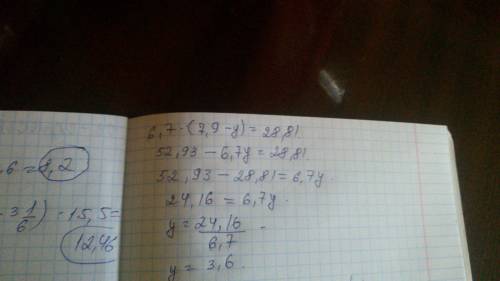 ,6 = 8,2
3 1/6) - 15,5 =
12,46
6,7·(7,9-y) = 28,81.
52,93 - 6,7y = 28,81.
52,93 - 28,81 = 6,7y.
24,16 = 6,7y.
y = 24,16/6,7.
y = 3,6.